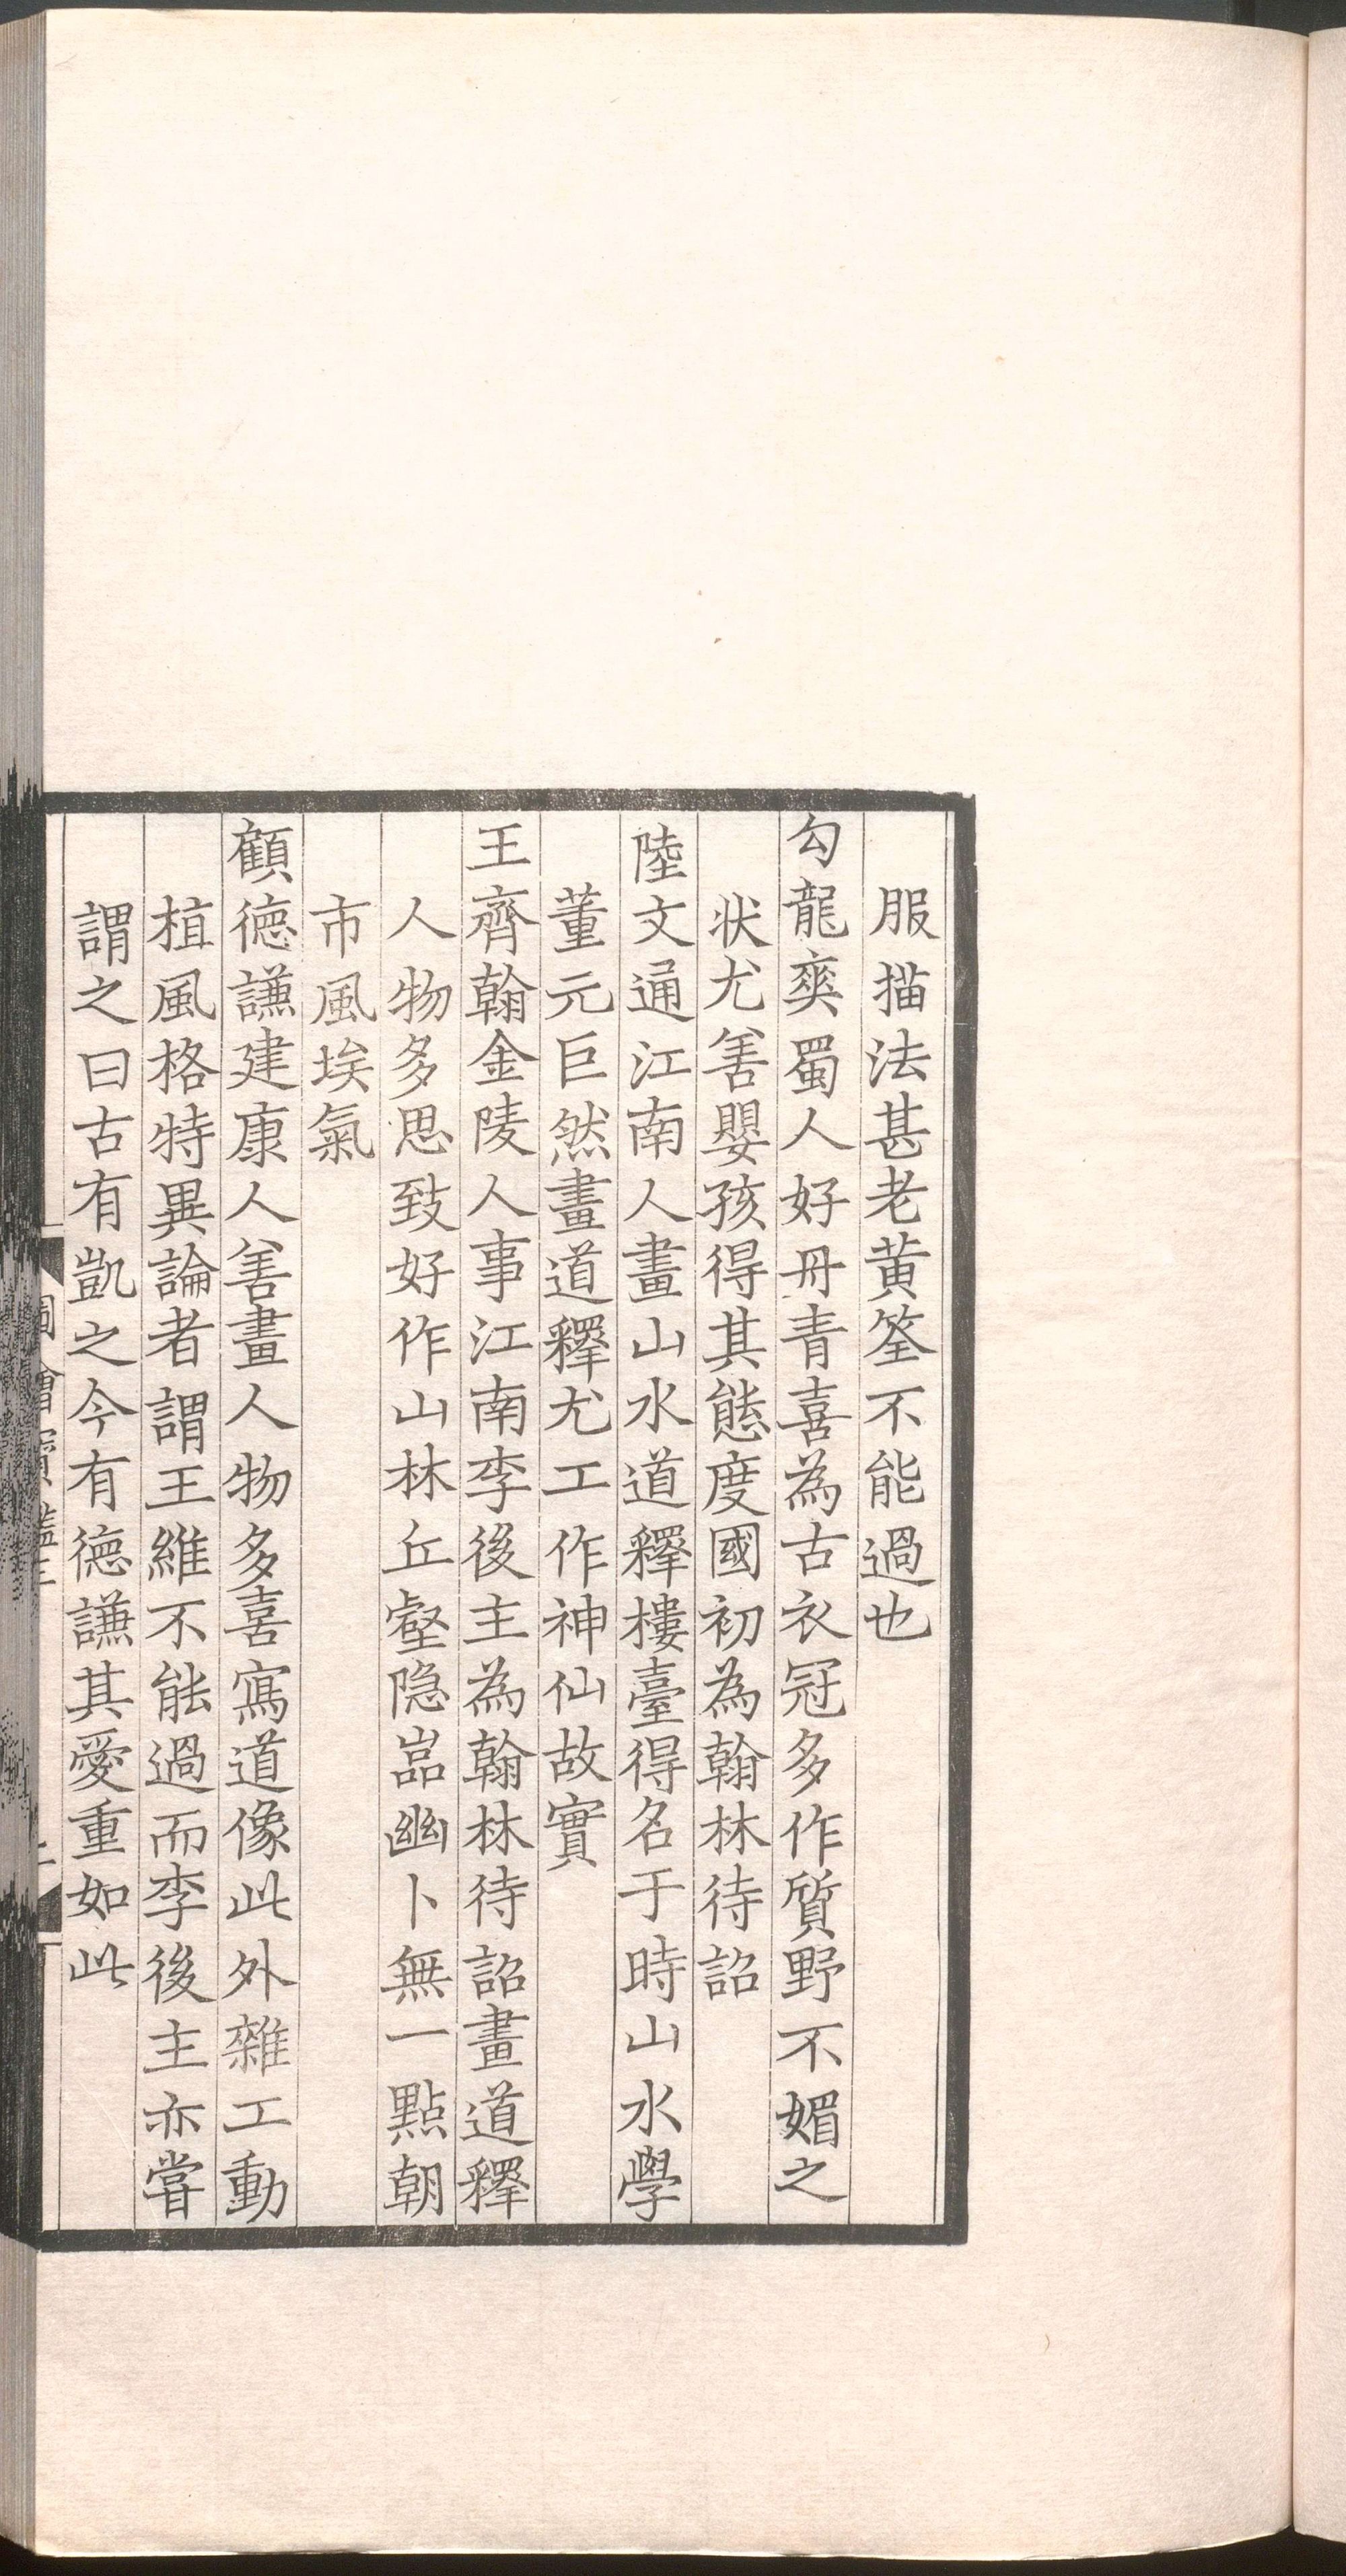 服描法甚老黄筌不能過也
勾龍爽蜀人好丹青喜為古衣冠多作質野不媚之
状尤善嬰孩得其態度國初為翰林待詔
陸文通江南人畫山水道釋樓臺得名于時山水學
董元巨然畫道釋尤工作神仙故實
王齊翰金陵人事江南李後主為翰林待詔畫道釋
人物多思致好作山林丘壑隐嵓幽卜無一點朝
市風埃氣
顧徳謙建康人善畫人物多喜寫道像此外雜工動
植風格特異論者謂王維不能過而李後主亦甞
謂之曰古有凱之今有徳謙其愛重如此
圖繪寶鑑三